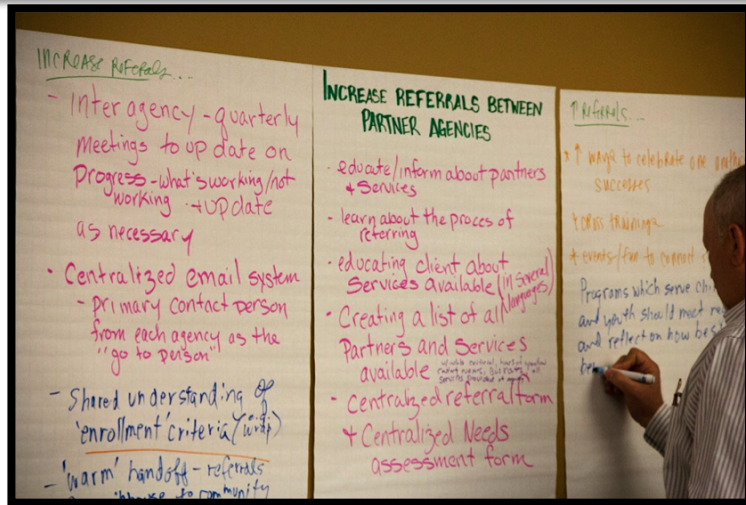 INCREASE REFERRALS...
- Inter agency - quarterly
Meetings to update on
Progress - what's working/not
working + update
as necessary
• Centralized email system
- Primary Contact person
from each agency as the
"go to person"
- Shared understanding of
'enrollment' criteria
- 'warm' handoff - referrals
to community
INCREASE REFERRALS BETWEEN
PARTNER AGENCIES
• educate/inform about partners
+ Services
• learn about the proces of
referring
• educating client about
Services available (in several
languages)
• Creating a list of all
Partners and Services
available
• Centralized referral form
+ Centralized Needs
assessment form
↑ Referrals...
* ↑ ways to celebrate one
successes
+ cross trainings
* events/fun to connect
Programs which serve
and youth should meet
and reflect on how